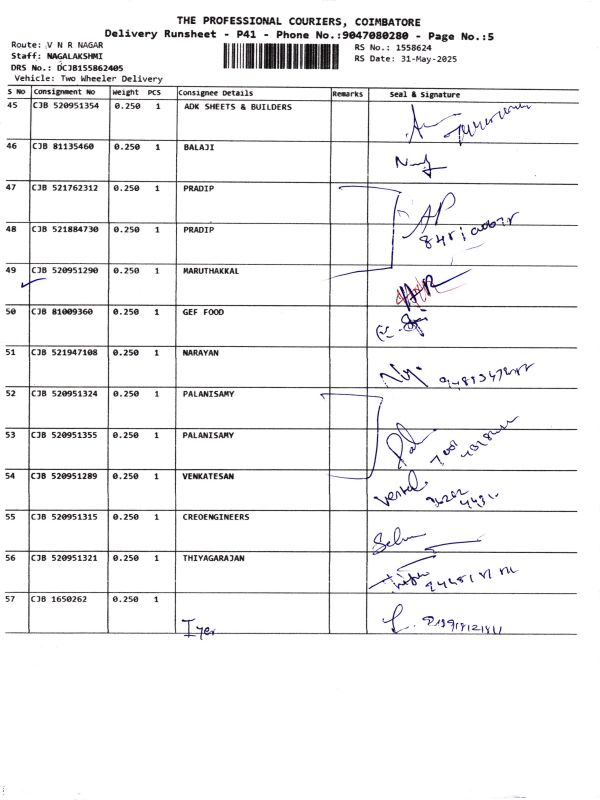 THE PROFESSIONAL COURIERS, COIMBATORE
Delivery Runsheet - P41 - Phone No.:9047080280 - Page No.:5
Route: V N R NAGAR
RS No.: 1558624
Staff: NAGALAKSHMI
RS Date: 31-May-2025
DRS No.: DCJB155862405
Vehicle: Two Wheeler Delivery
S No Consignment No Weight PCS Consignee Details Remarks Seal & Signature
45 CJB 520951354 0.250 1 ADK SHEETS & BUILDERS
46 CJB 81135460 0.250 1 BALAJI
47 CJB 521762312 0.250 1 PRADIP
48 CJB 521884730 0.250 1 PRADIP
AP
49 CJB 520951290 0.250 1 MARUTHAKKAL
50 CJB 81009360 0.250 1 GEF FOOD
51 CJB 521947108 0.250 1 NARAYAN
52 CJB 520951324 0.250 1 PALANISAMY
53 CJB 520951355 0.250 1 PALANISAMY
Pal
54 CJB 520951289 0.250 1 VENKATESAN
55 CJB 520951315 0.250 1 CREOENGINEERS
56 CJB 520951321 0.250 1 THIYAGARAJAN
57 CJB 1650262 0.250 1
Iyer